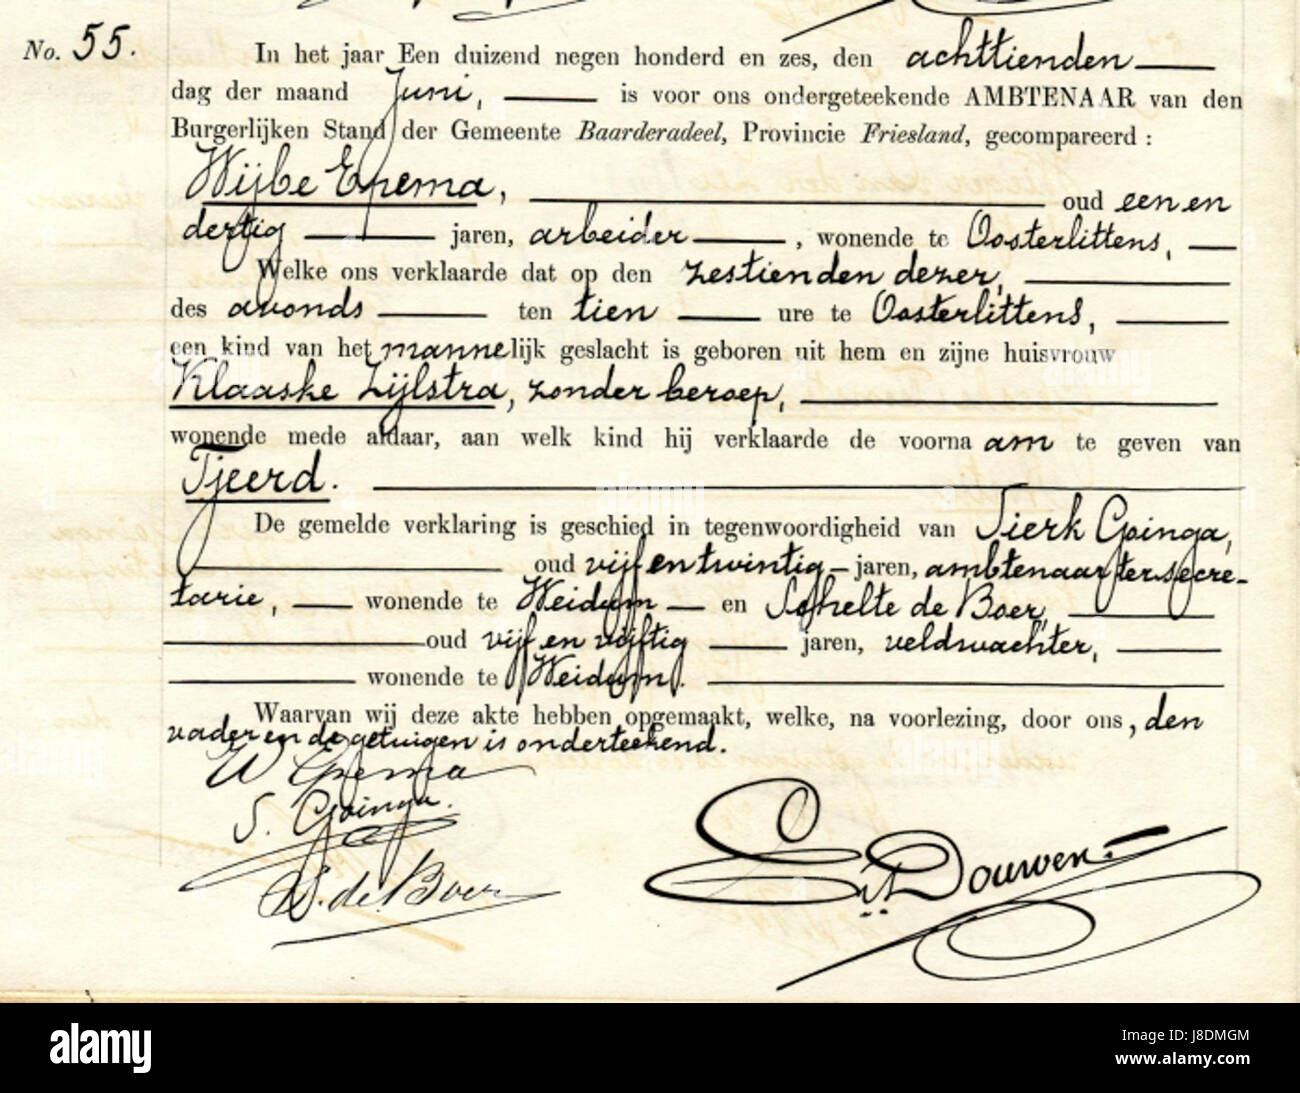 No. 55.
In het jaar Een duizend negen honderd en zes, den achttienden
dag der maand Juni, is voor ons ondergeteekende AMBTENAAR van den
Burgerlijken Stand der Gemeente Baarderadeel, Provincie Friesland, gecompareerd :
Wijbe Epema, oud een en
dertig jaren, arbeider, wonende te Oosterlittens,
Welke ons verklaarde dat op den zestienden dezer,
des avonds ten tien ure te Oosterlittens,
een kind van het mannelijk geslacht is geboren uit hem en zijne huisvrouw
Klaaske Zijlstra, zonder beroep,
wonende mede aldaar, aan welk kind hij verklaarde de voornaam te geven van
Tjeerd.
De gemelde verklaring is geschied in tegenwoordigheid van Sierk Goinga,
oud vijf en twintig jaren, ambtenaar ter secre-
tarie, wonende te Weidum en Schelte de Boer,
oud vijf en vijftig jaren, veldwachter,
wonende te Weidum.
Waarvan wij deze akte hebben opgemaakt, welke, na voorlezing, door ons, den
vader en de getuigen is onderteekend.
W Epema
S. Goinga.
S. de Boer
Douwen.
alamy
Image ID: J8DMGM
www.alamy.com